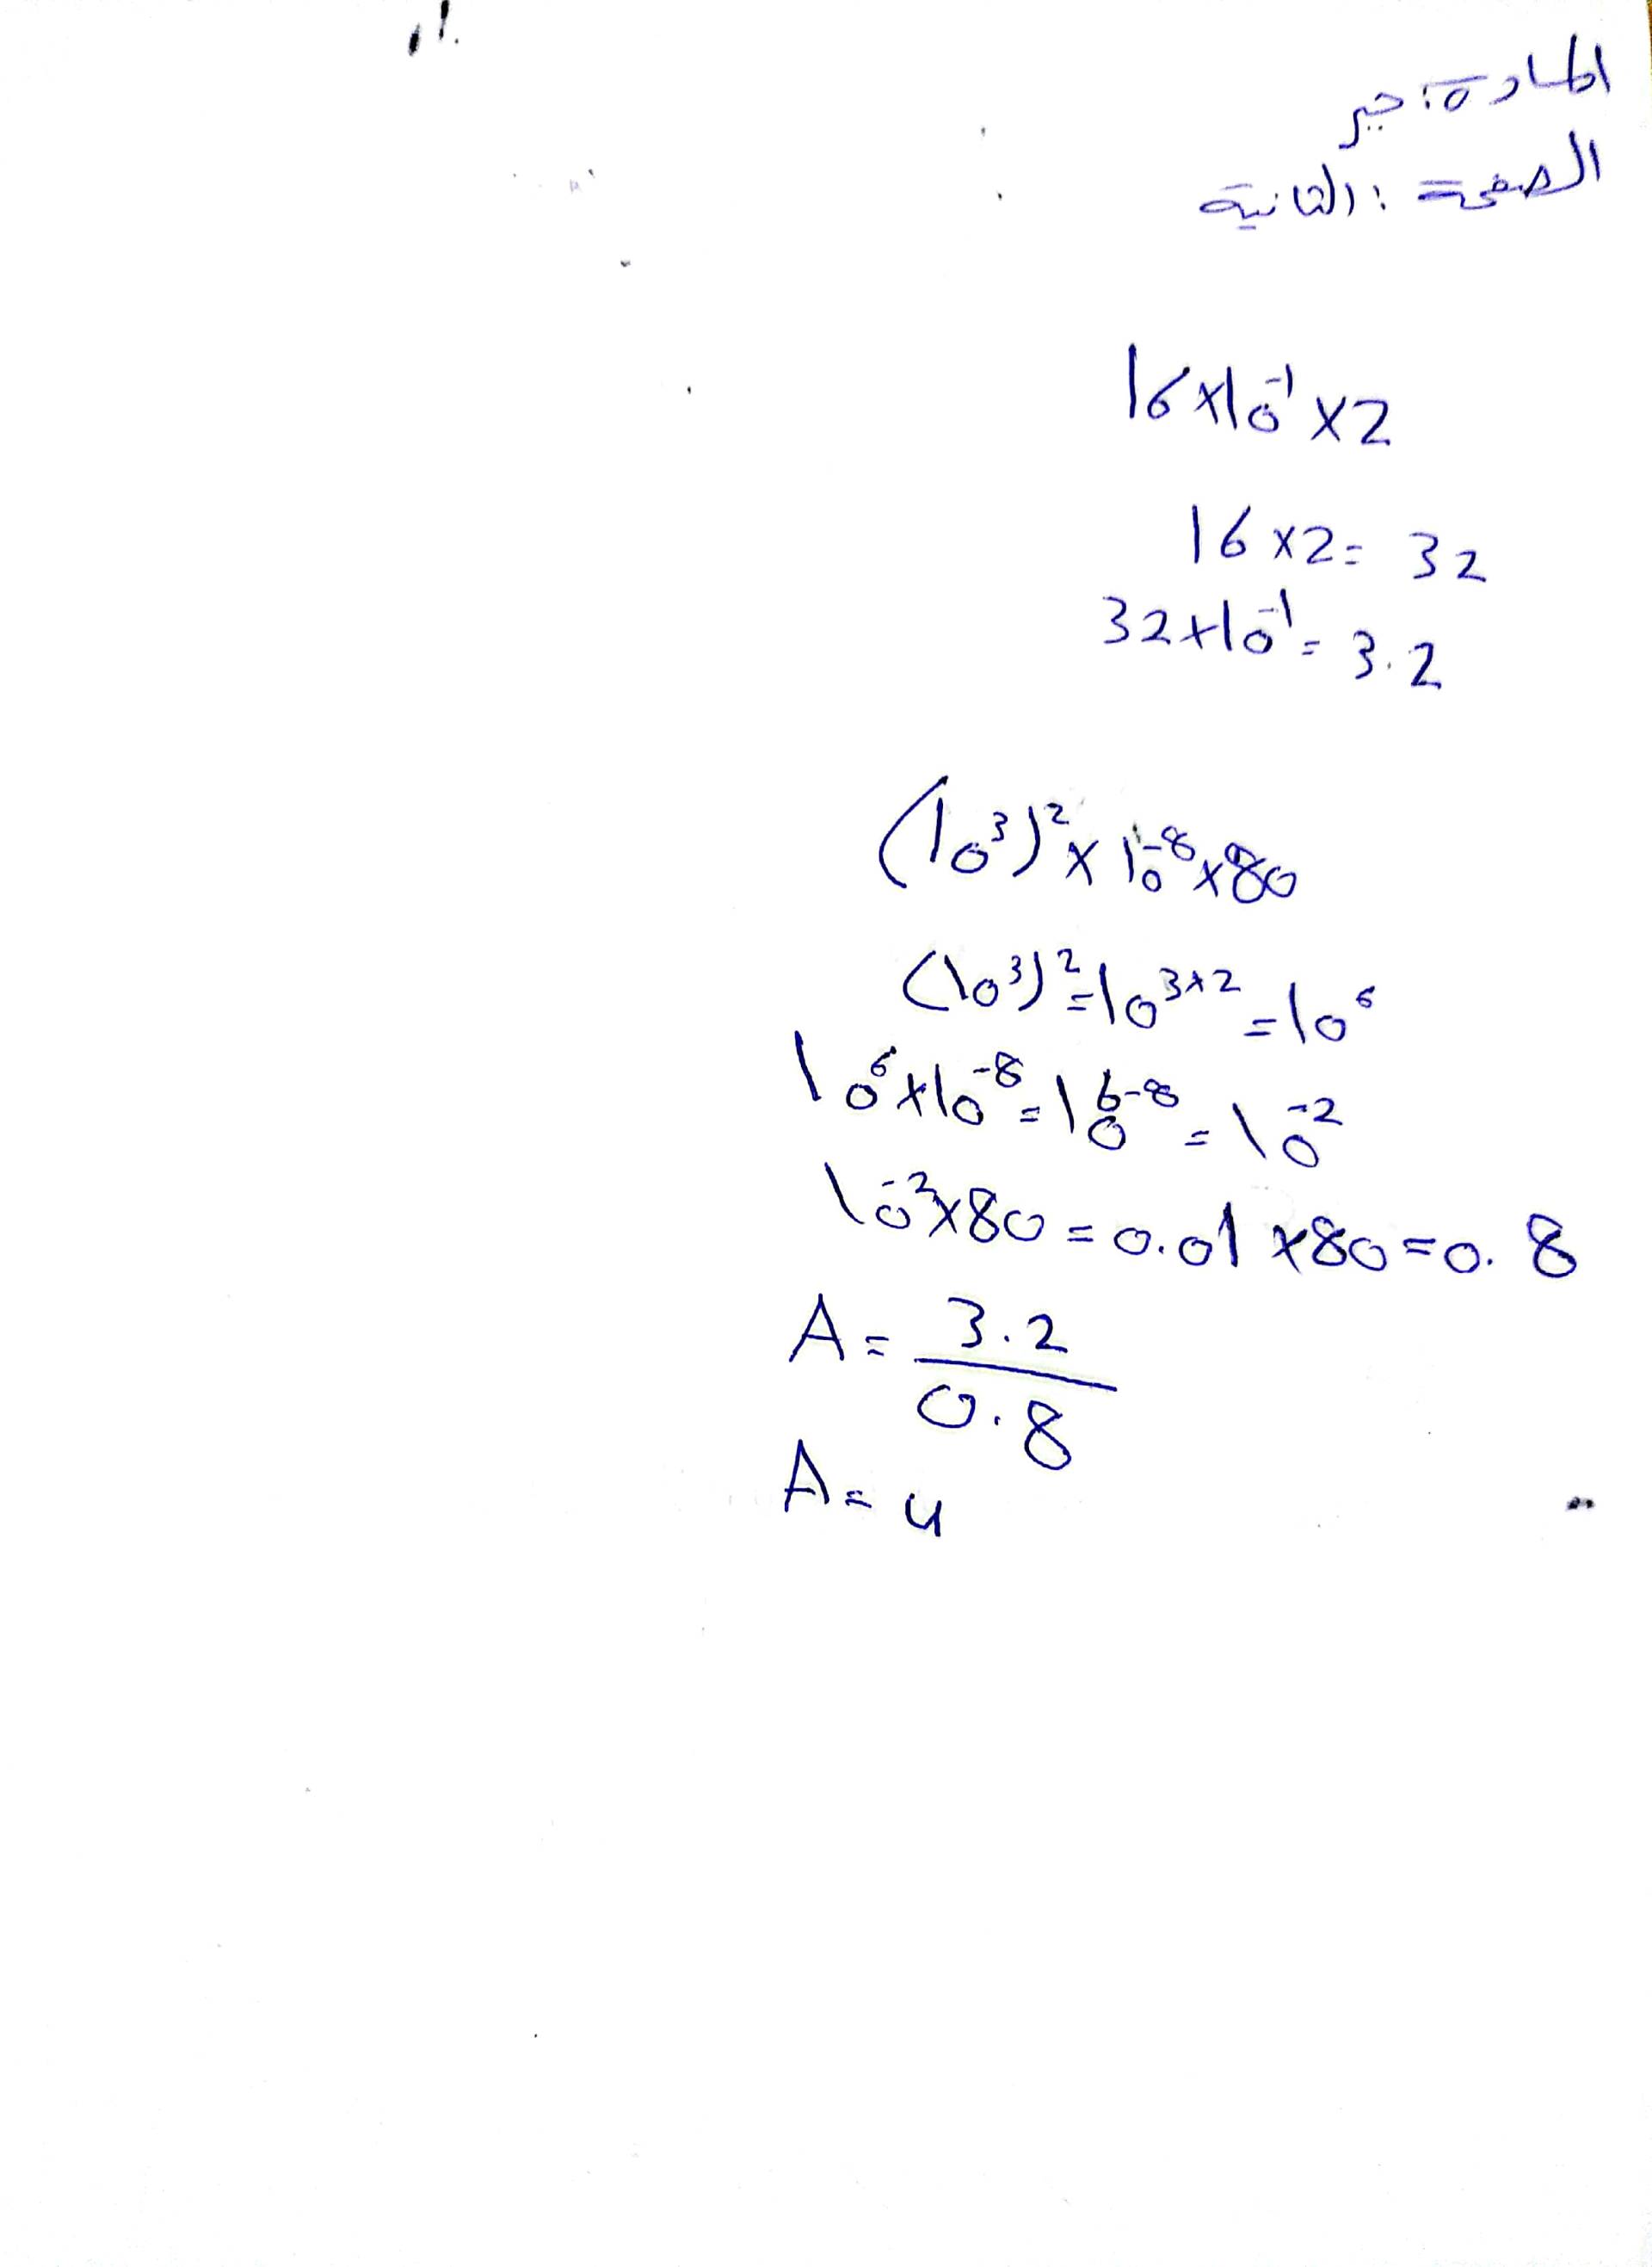 المادة: جبر
الصفحة: الثانية
16×10⁻¹×2
16×2=32
32×10⁻¹=3.2
(10³)²×10⁻⁸×80
(10³)²=10³ˣ²=10⁶
10⁶×10⁻⁸=10⁶⁻⁸=10⁻²
10⁻²×80=0.01×80=0.8
A=3.2/0.8
A=4